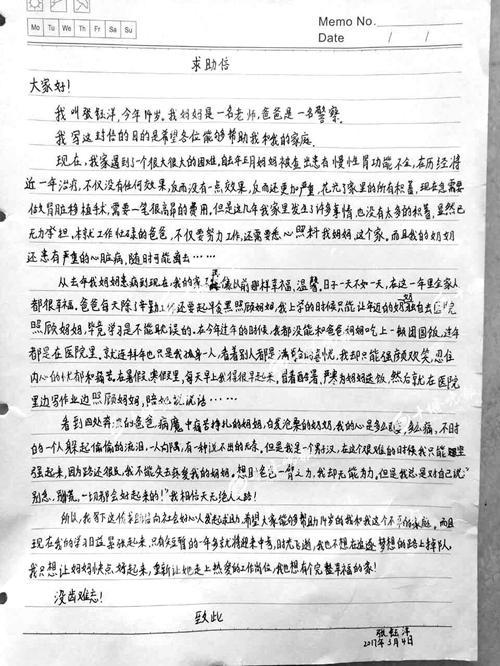 Memo No.
Mo Tu We Th Fr Sa Su
Date / /
求助信
大家好!
我叫张钰洋,今年14岁。我妈妈是一名老师,爸爸是一名警察。
我写这封信的目的是希望各位能够帮助我和我的家庭。
现在,我家遇到了个很大很大的困难,自去年五月妈妈被查出患有慢性肾功能不全,在历经将
近一年治疗,不仅没有任何效果,反而没有一点效果,反而还更加严重,花光了家里的所有积蓄,现在急需要
做肾脏移植手术,需要一笔很高昂的费用,但是这几年我家里发生了许多事情也没有太多的积蓄,显然已
无力承担。本就工作忙碌的爸爸,不仅要努力工作,还需要悉心照料我妈妈这个家。而且我的奶奶
还患有严重的心脏病,随时可能离去……
从去年我妈妈患病到现在,我的家 像以前那样幸福,温馨。日子一天不如一天,在这一年里全家人
都很辛苦。爸爸每天除了辛勤工作还要起早贪黑照顾妈妈,我上学的时候只能让年迈的奶奶独自去医院
照顾妈妈,毕竟学习是不能耽误的。在今年过年的时候,我都没能和爸爸妈妈吃上一顿团圆饭,过年
都是在医院里,就连拜年也只是我孤身一人,看着别人都是 ,我却只能强颜欢笑,忍住
内心的忧郁和痛苦。在暑假,寒假里,每天早上我得很早起来,冒着酷暑,严寒为妈妈送饭,然后就在医院
里边写作业边照顾妈妈,陪她说说话……
看到四处奔波的爸爸,病魔中痛苦挣扎的妈妈,白发沧桑的奶奶,我的心是多么 ,多么痛,不时
的一个人躲起偷偷的流泪,一人向隅,有一种说不出的无奈。但是我是个男子汉,在这个艰难的时候我只能
强起来,因为路还很长,我不能失去疼爱我的妈妈。想助爸爸一臂之力,我却无能为力。但是我总是对自己说:"
别怂,别慌。一切都会好起来的!"我相信天无绝人之路!
所以,我写下这份求助信向社会好心人发起求助,希望大家能够帮助14岁的我和我这个不幸的家庭。而且
现在我的学习日益紧张起来,只有仅短暂的一年多就将迎来中考,时光飞逝,我也不想在追逐梦想的路上掉队。
我只想让妈妈快点好起来,重新让她走上热爱的工作岗位,我也想有个完整幸福的家!
没齿难忘!
致此
张钰洋
2017年3月4日